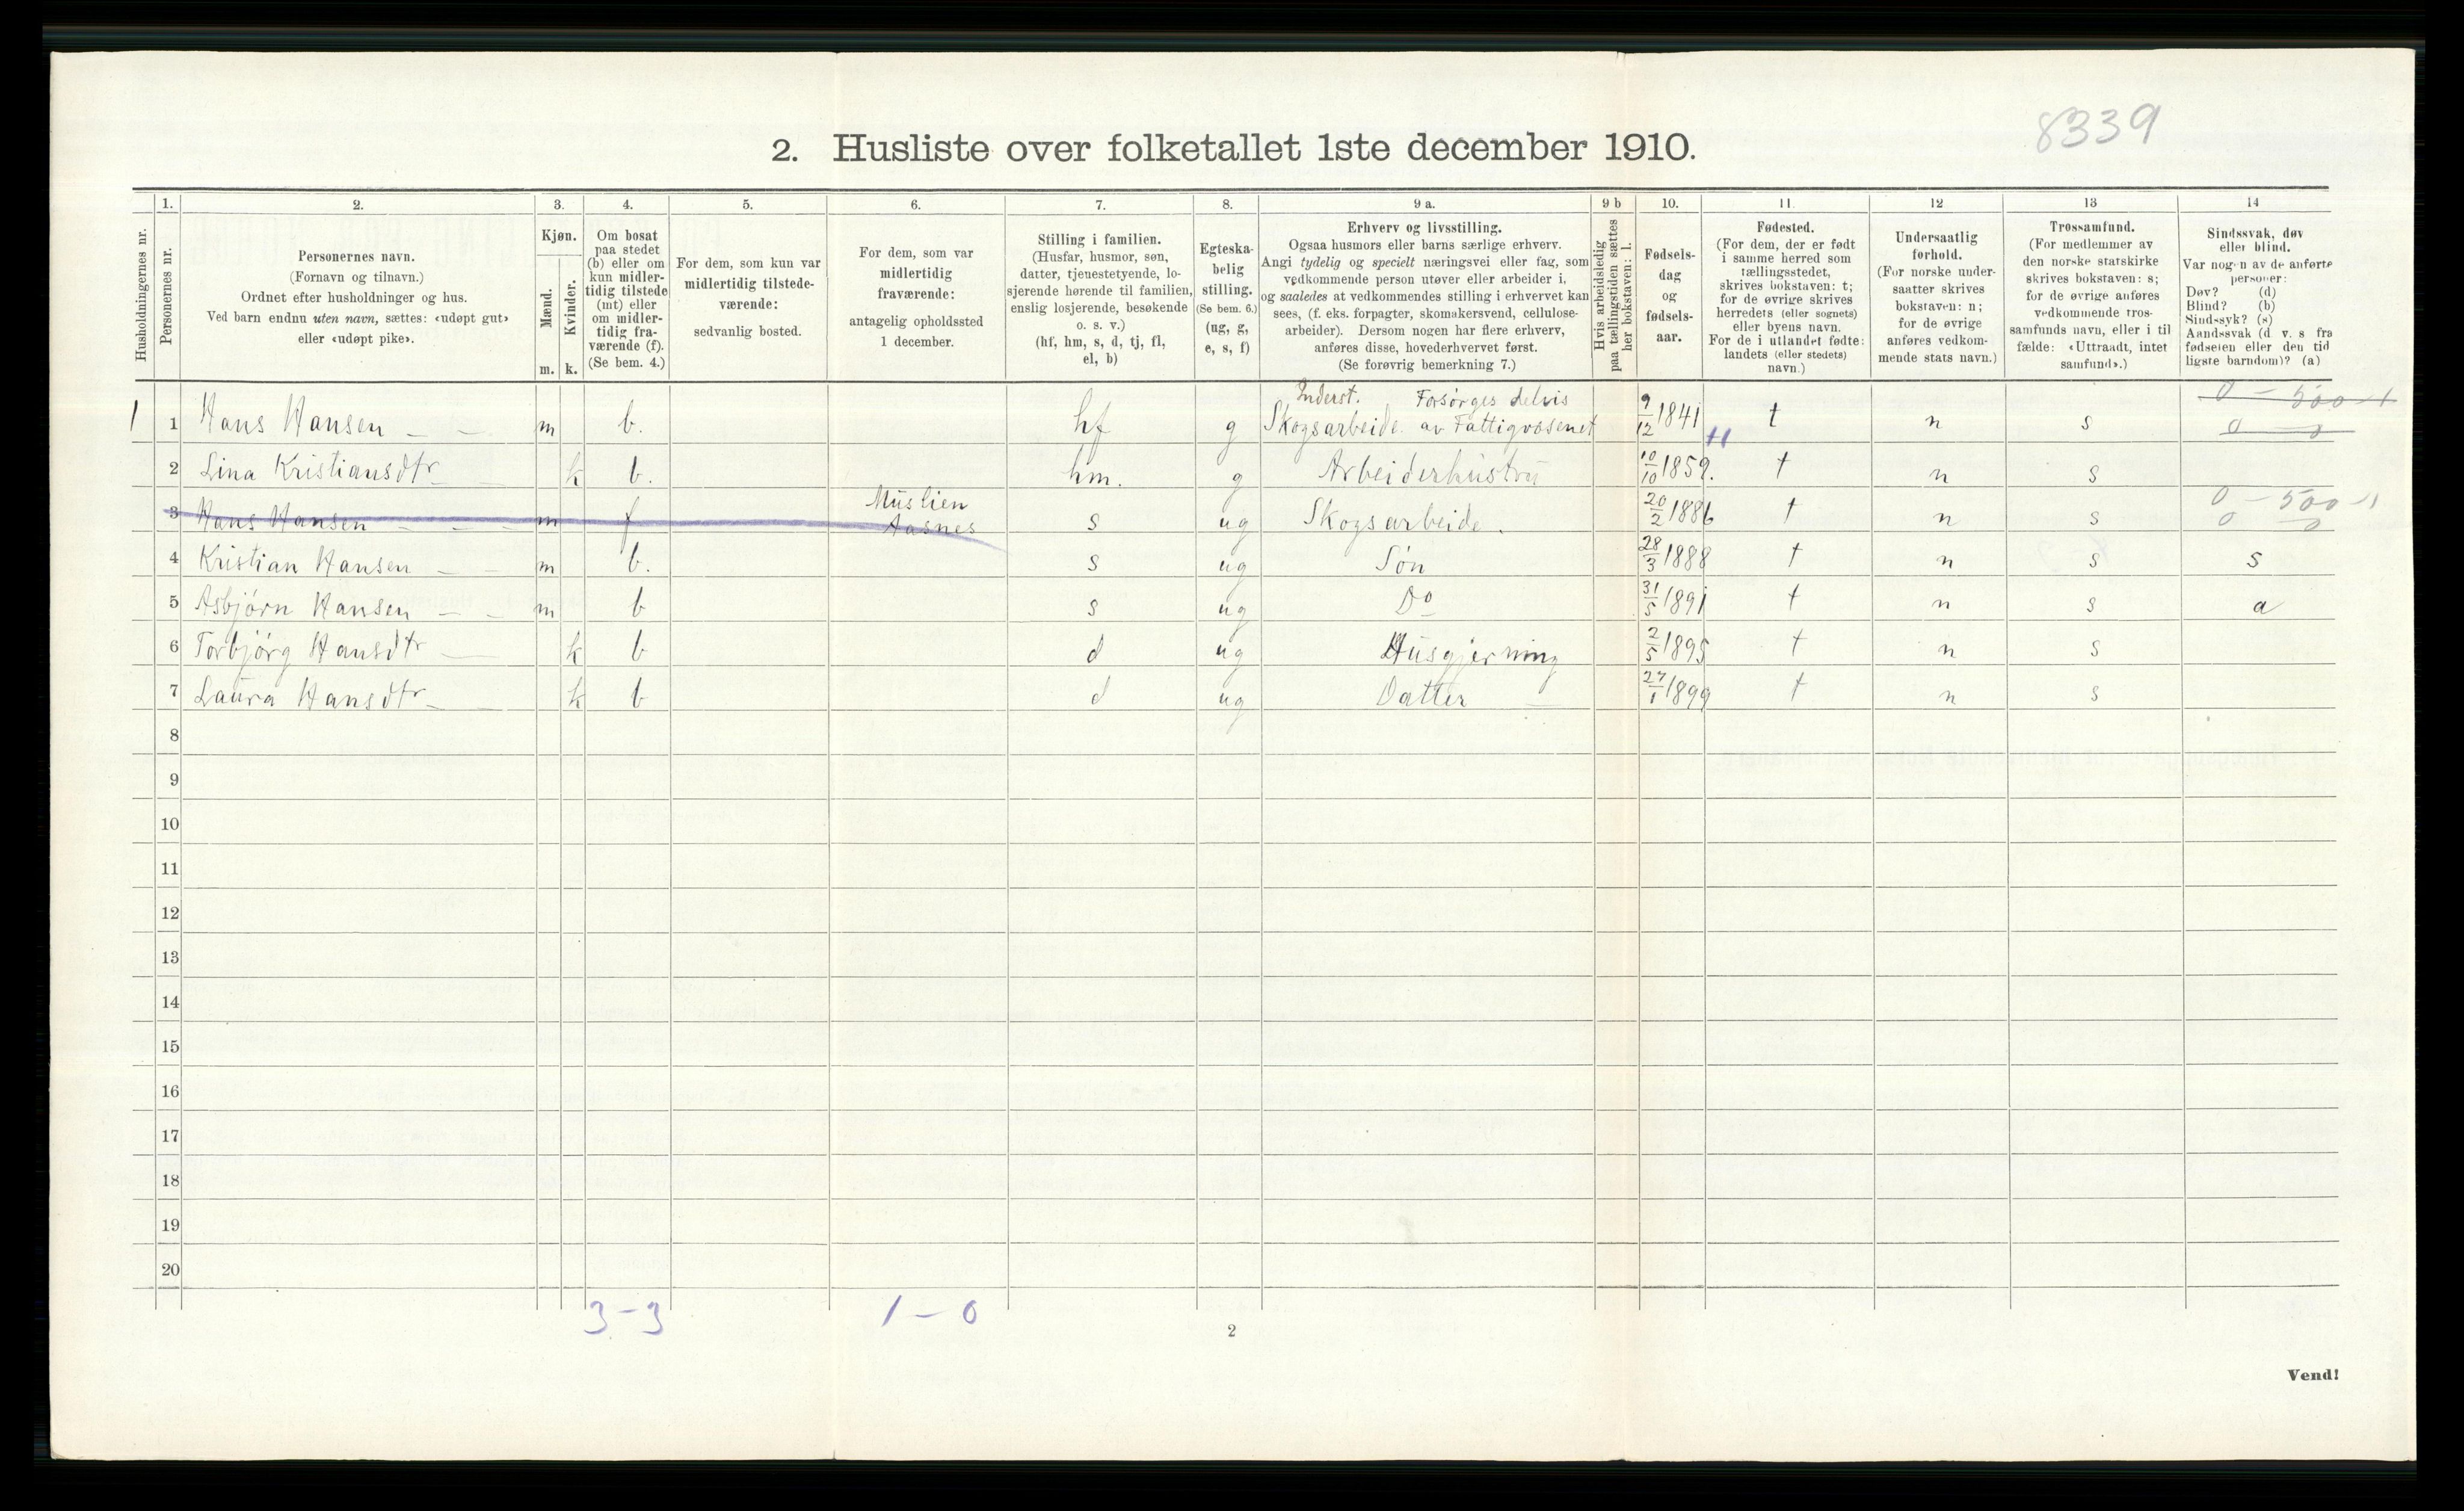 8339
2. Husliste over folketallet 1ste december 1910.
Husholdningernes nr.
1. Personernes nr.
2. Personernes navn.
(Fornavn og tilnavn.)
Ordnet efter husholdninger og hus.
Ved barn endnu uten navn, sættes: «udøpt gut»
eller «udøpt pike».
3. Kjøn.
Mænd. m.
Kvinder. k.
4. Om bosat
paa stedet
(b) eller om
kun midler-
tidig tilstede
(mt) eller
om midler-
tidig fra-
værende (f).
(Se bem. 4.)
5. For dem, som kun var
midlertidig tilstede-
værende:
sedvanlig bosted.
6. For dem, som var
midlertidig
fraværende:
antagelig opholdssted
1 december.
7. Stilling i familien.
(Husfar, husmor, søn,
datter, tjenestetyende, lo-
sjerende hørende til familien,
enslig losjerende, besøkende
o. s. v.)
(hf, hm, s, d, tj, fl,
el, b)
8. Egteska-
belig
stilling.
(Se bem. 6.)
(ug, g,
e, s, f)
9 a. Erhverv og livsstilling.
Ogsaa husmors eller barns særlige erhverv.
Angi tydelig og specielt næringsvei eller fag, som
vedkommende person utøver eller arbeider i,
og saaledes at vedkommendes stilling i erhvervet kan
sees, (f. eks. forpagter, skomakersvend, cellulose-
arbeider). Dersom nogen har flere erhverv,
anføres disse, hovederhvervet først.
(Se forøvrig bemerkning 7.)
9 b Hvis arbeidsledig
paa tællingstiden sættes
her bokstaven: l.
10. Fødsels-
dag
og
fødsels-
aar.
11. Fødested.
(For dem, der er født
i samme herred som
tællingsstedet,
skrives bokstaven: t;
for de øvrige skrives
herredets (eller sognets)
eller byens navn.
For de i utlandet fødte:
landets (eller stedets)
navn.)
12 Undersaatlig
forhold.
(For norske under-
saatter skrives
bokstaven: n;
for de øvrige
anføres vedkom-
mende stats navn.)
13 Trossamfund.
(For medlemmer av
den norske statskirke
skrives bokstaven: s;
for de øvrige anføres
vedkommende tros-
samfunds navn, eller i til
fælde: «Uttraadt, intet
samfund».)
14 Sindssvak, døv
eller blind.
Var nogen av de anførte
personer:
Døv? (d)
Blind? (b)
Sindssyk? (s)
Aandssvak (d v. s fra
fødselen eller den tid
ligste barndom)? (a)
Inderst. Forsørges delvis 0 - 500 - 1
1 1 Hans Hansen — — m b. hf g Skogsarbeide. av Fattigvæsenet 9/12 1841 t n s 0 - 0
2 Lina Kristiansdtr k b. hm. g Arbeiderhustru 10/10 1859. t n s
Muslien 0 - 500 - 1
3 Hans Hansen — — m f Aasnes s ug Skogsarbeide. 20/2 1886 t n s 0 0
4 Kristian Hansen — — m b. s ug Søn 28/3 1888 t n s s
5 Asbjørn Hansen — — m b s ug Do 31/5 1891 t n s a
6 Torbjørg Hansdtr — k b d ug Husgjerning 2/5 1895 t n s
7 Laura Hansdtr — k b d ug Datter — 27/1 1899 t n s
8
9
10
11
12
13
14
15
16
17
18
19
20
3 - 3 1 - 0
2
Vend!